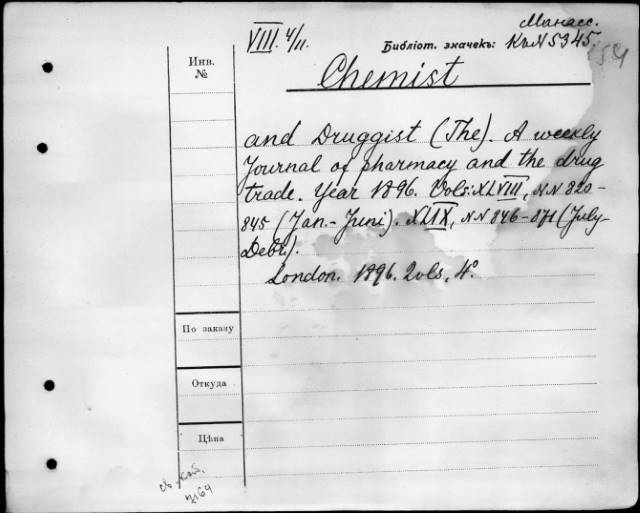 Манасс.
VIII. 4/11. Библіот. значекъ: К. №5345
Инв.
№
Chemist
and Druggist (The). A weekly
Journal of pharmacy and the drug
trade. Year 1896. Vols: XLVIII, NN 820-
845 (Jan.-Juni). XLIX, NN 846-871 (July-
Debr).
London. 1896. 2 vols. 4°
По заказу
Откуда
Цѣна